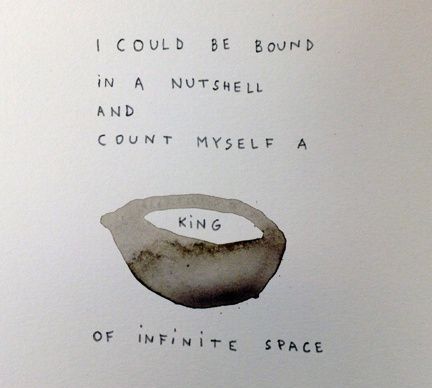 I COULD BE BOUND
iN A NUTSHELL
AND
COUNT MYSELF A
KiNG
OF iNFiNiTE SPACE